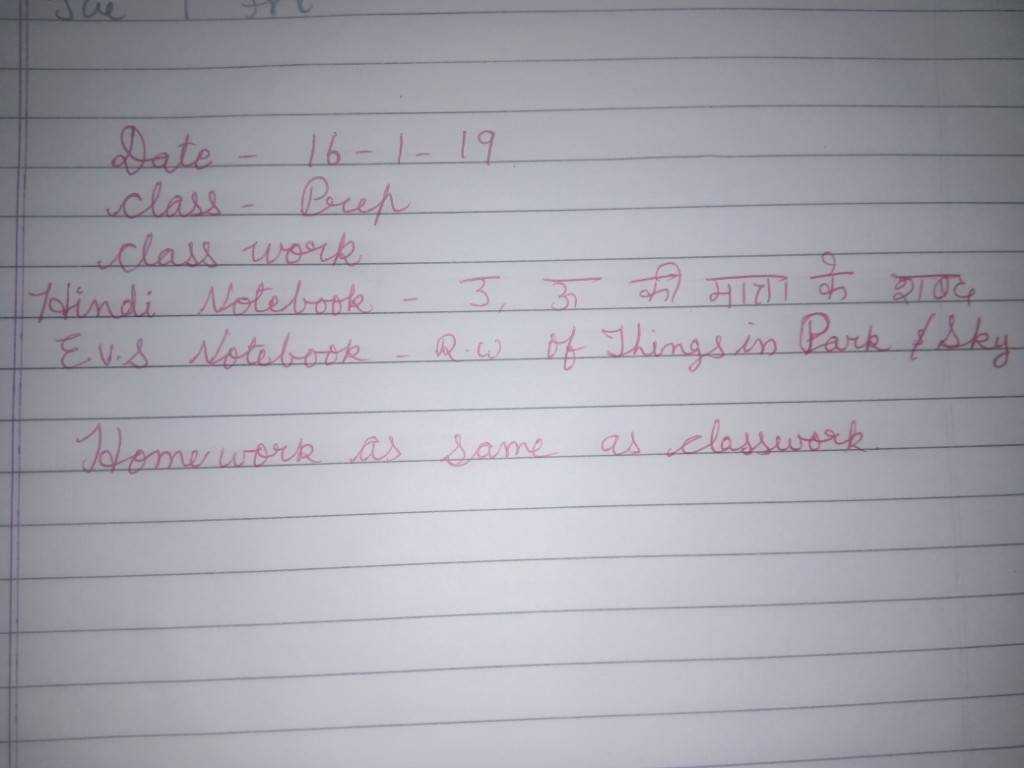 Date - 16-1-19
class - Prep
class work
Hindi Notebook - उ, ऊ की मात्रा के शब्द
E.v.S Notebook - R.W of Things in Park & Sky
Homework as same as classwork